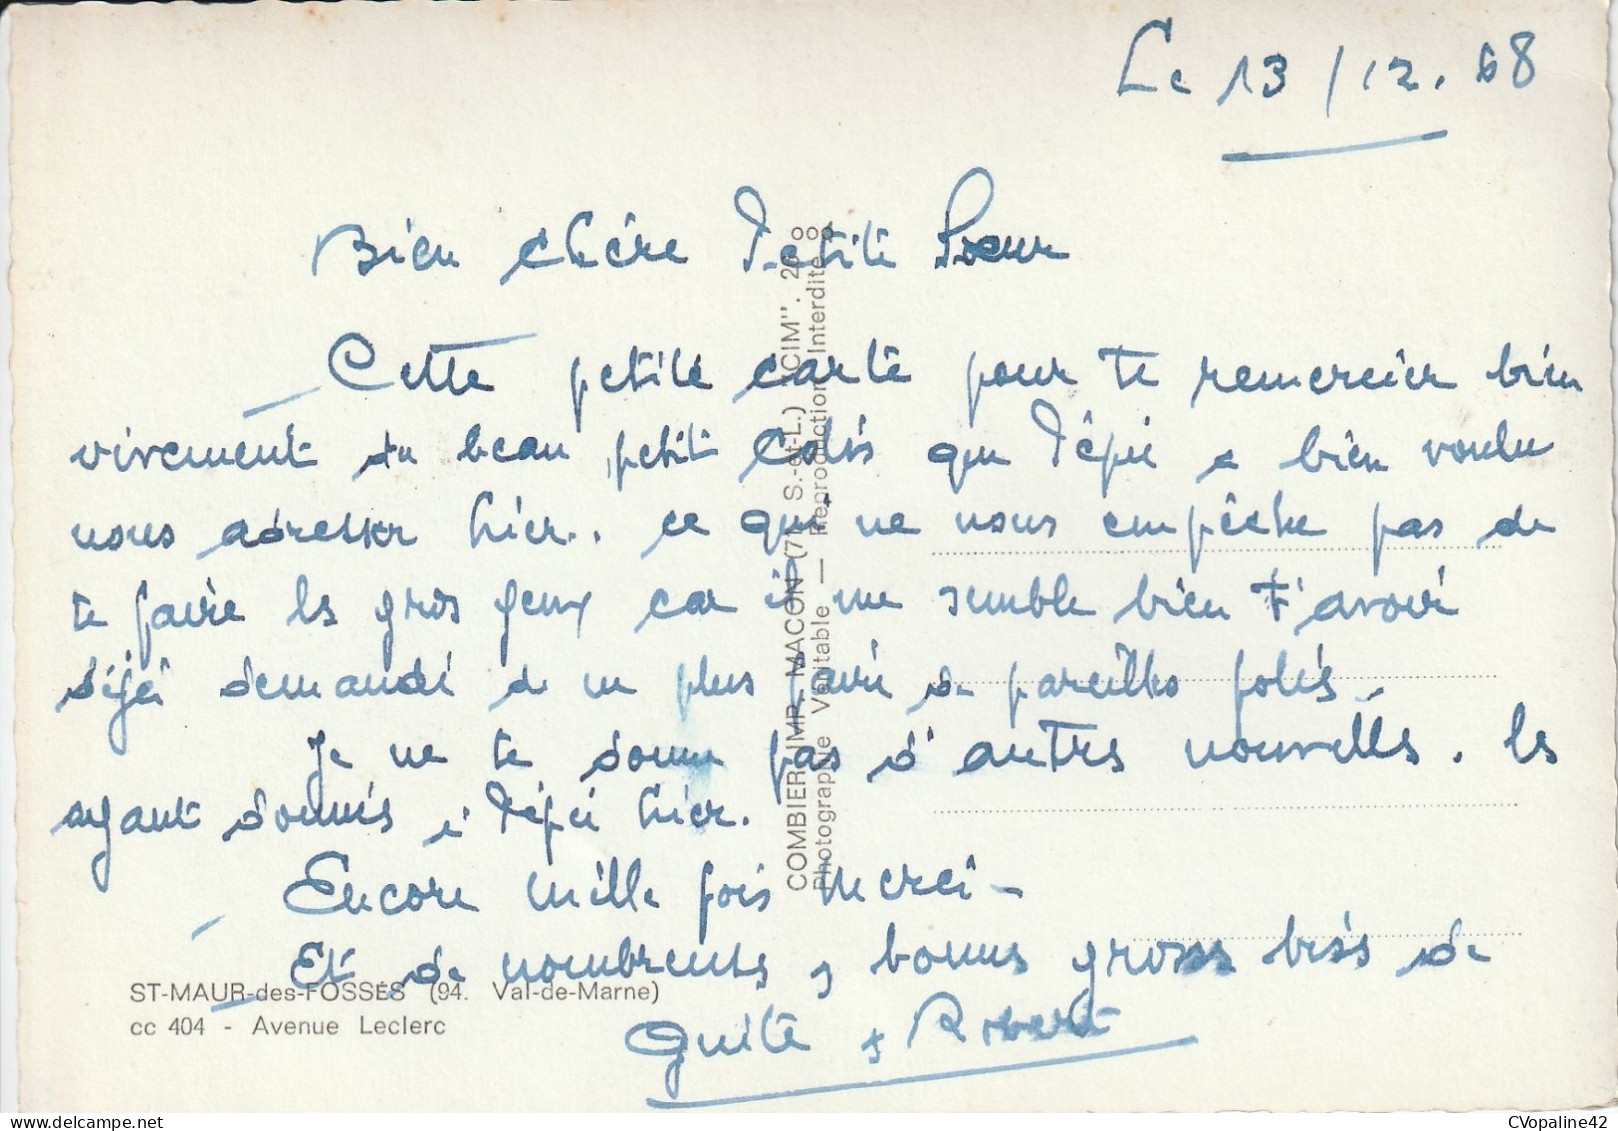 Le 13/12.68
Bien chère Petite Sœur
Cette petite carte pour te remercier bien
vivement du beau petit colis que Pépée a bien voulu
nous adresser hier.. ce qui ne nous empêche pas de
te faire les gros yeux car il me semble bien t'avoir
déjà demandé de ne plus faire de pareilles folies -
Je ne te donne pas d'autres nouvelles. les
ayant données à Pépée hier.
Encore mille fois merci -
Et de nombreuses, bonnes grosses bises de
Guite & Robert
COMBIER IMP. MACON (71 S.-et-L.) "CIM".
Photographie Véritable — Reproduction Interdite
ST-MAUR-des-FOSSÉS (94. Val-de-Marne)
cc 404 - Avenue Leclerc
CVopaline42